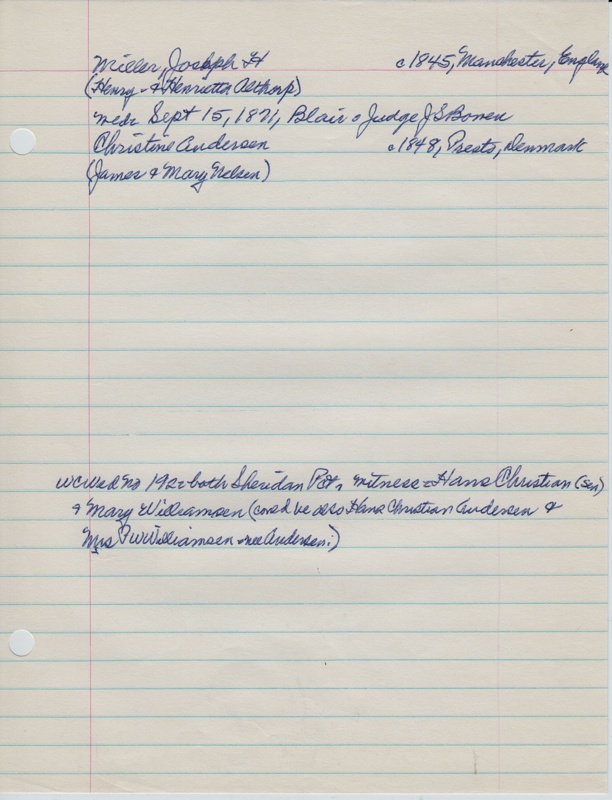 Miller, Joseph H c1845, Manchester, England
(Henry & Henrietta Althorp)
wed: Sept 15, 1871, Blair = Judge J S Bowen
Christine Andersen c1848, Presto, Denmark
(James & Mary Nelsen)
WC Wed No 192 = both Sheridan Pct, witness = Hans Christian (sen)
& Mary Williamsen (could be also Hans Christian Andersen &
Mrs P W Williamsen - nee Andersen:)